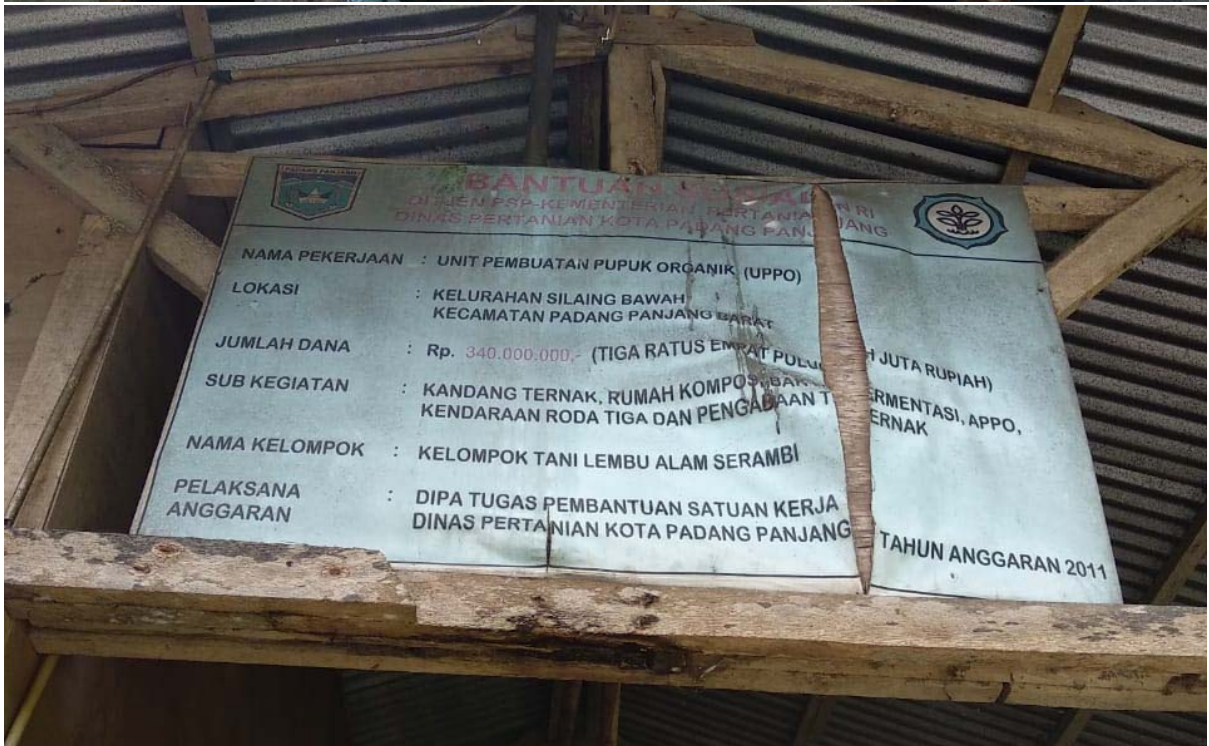 PADANG PANJANG
BANTUAN SOSIAL
DITJEN PSP-KEMENTERIAN PERTANIAN RI
DINAS PERTANIAN KOTA PADANG PANJANG
NAMA PEKERJAAN : UNIT PEMBUATAN PUPUK ORGANIK (UPPO)
LOKASI : KELURAHAN SILAING BAWAH
KECAMATAN PADANG PANJANG BARAT
JUMLAH DANA : Rp. 340.000.000,- (TIGA RATUS EMPAT PULUH JUTA RUPIAH)
SUB KEGIATAN : KANDANG TERNAK, RUMAH KOMPOS, BAK FERMENTASI, APPO,
KENDARAAN RODA TIGA DAN PENGADAAN TERNAK
NAMA KELOMPOK : KELOMPOK TANI LEMBU ALAM SERAMBI
PELAKSANA ANGGARAN : DIPA TUGAS PEMBANTUAN SATUAN KERJA
DINAS PERTANIAN KOTA PADANG PANJANG TAHUN ANGGARAN 2011